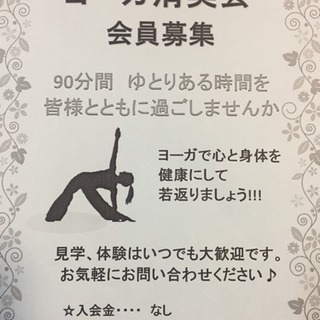 会員募集
90分間 ゆとりある時間を
皆様とともに過ごしませんか
ヨーガで心と身体を
健康にして
若返りましょう!!!
見学、体験はいつでも大歓迎です。
お気軽にお問い合わせください♪
☆入会金‥‥ なし